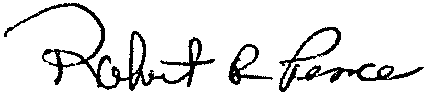 Robert R Pence